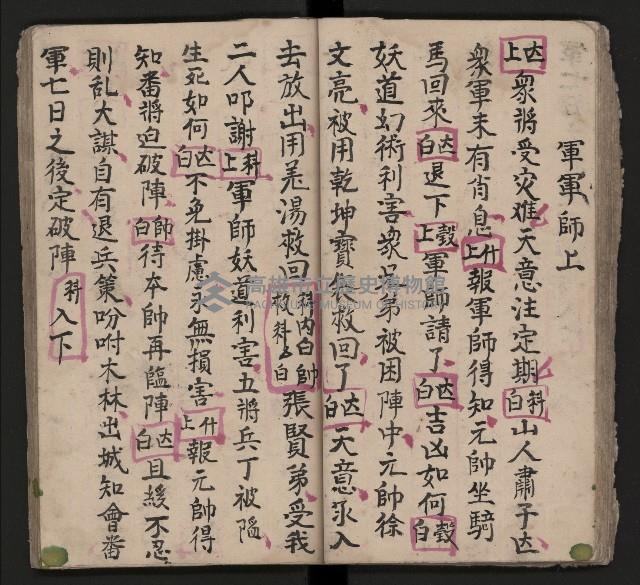 軍軍師上
上㐯衆將受灾难天意注定期白科山人肅子㐯
衆軍未有肖息上什報軍師得知元帥坐騎
馬回來白㐯退下上毂軍師請了白㐯吉凶如何白毂
妖道幻術利害衆兄弟被困陣中元帥徐
文亮被用乾坤寶 救回了白㐯天意承入
去放出用羗湯救回科内白帥救科白張賢弟受我
二人叩謝上科軍師妖道利害五將兵丁被陷
生死如何白㐯不免掛慮永無損害上什報元帥得
知番將迫破陣白帥待本帥再臨陣白㐯且緩不忍
則乱大謀自有退兵策吩咐木林出城知會番
軍七日之後定破陣科入下
高雄市立歷史博物館
KAOHSIUNG MUSEUM OF HISTORY